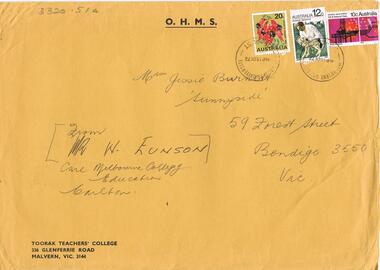 3320.51a
O. H. M. S.
20c
AUSTRALIA
AUSTRALIA
12c
10c Australia
Mrs Jessie Burnett
'Sunnyside'
59 Forest Street
Bendigo 3550
Vic
From
Mr W. EUNSON
Care Melbourne College
Education
Carlton.
TOORAK TEACHERS' COLLEGE
336 GLENFERRIE ROAD
MALVERN, VIC. 3144